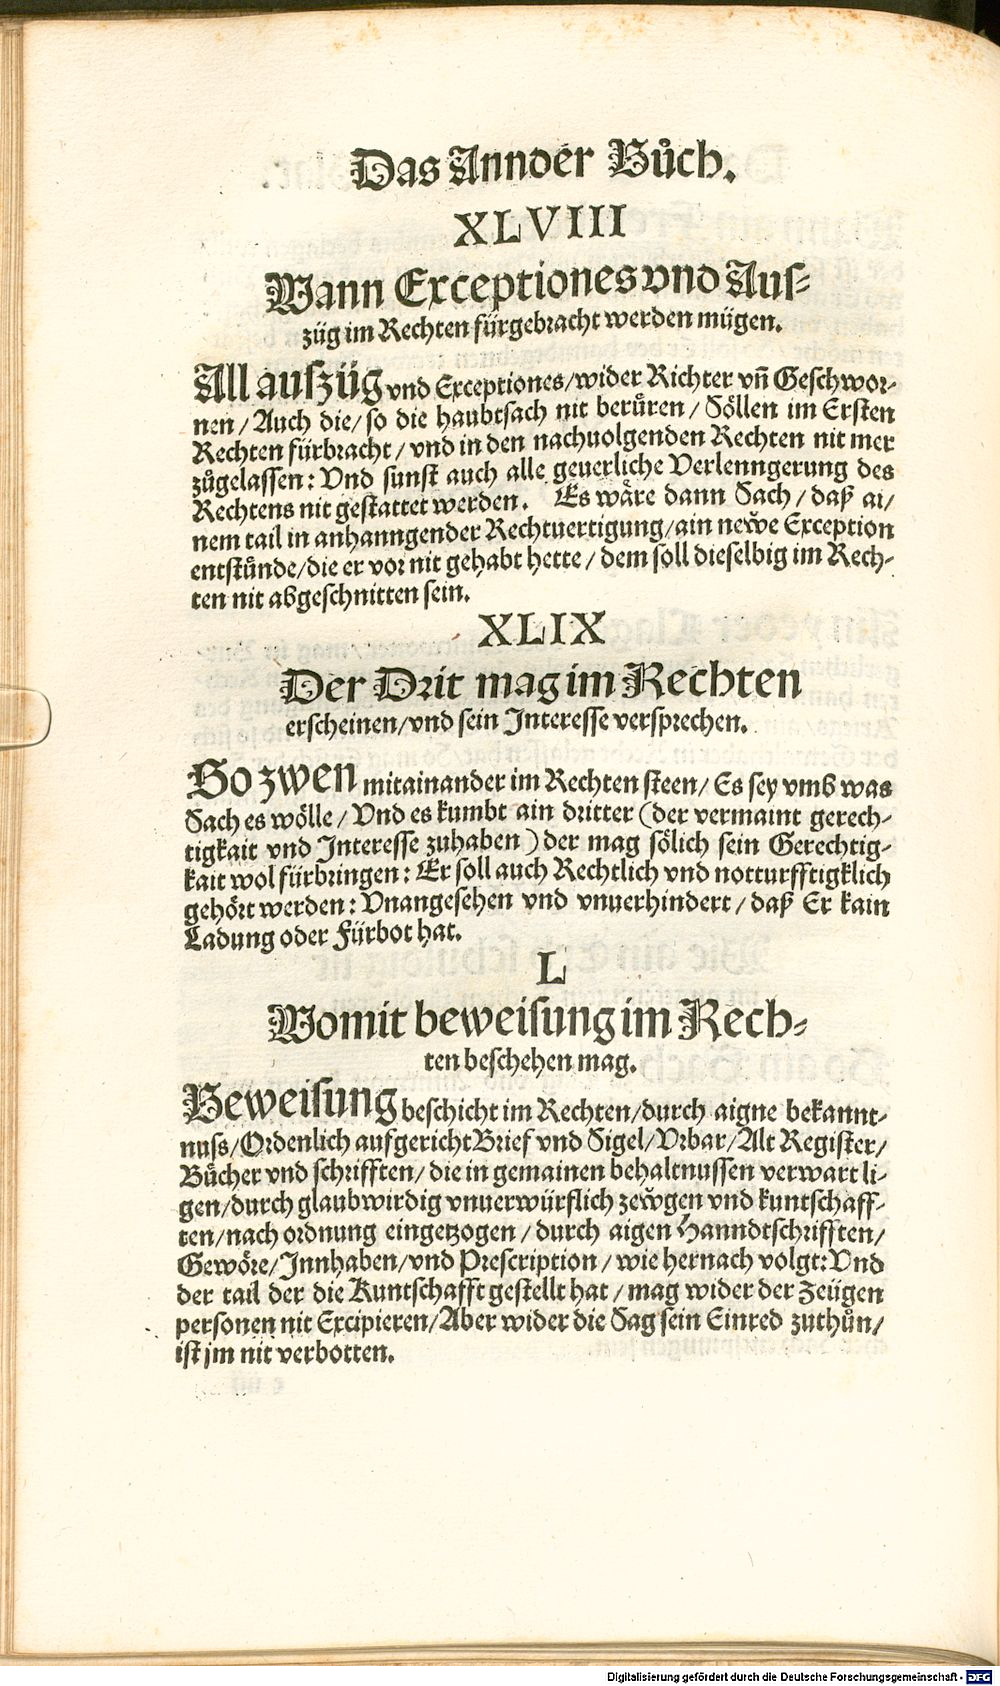 Das Annder Bůch.
XLVIII
Wann Exceptiones vnd Aus-
züg im Rechten fürgebracht werden mügen.
All auszüg vnd Exceptiones/wider Richter vñ Geschwor-
nen/Auch die/so die haubtsach nit berüren/Söllen im Ersten
Rechten fürbracht/vnd in den nachuolgenden Rechten nit mer
zůgelassen: Vnd sunst auch alle geuerliche Verlenngerung des
Rechtens nit gestattet werden. Es wäre dann Sach/daß ai/
nem tail in anhanngender Rechtuertigung/ain newe Exception
entstünde/die er vor nit gehabt hette/dem soll dieselbig im Rech-
ten nit abgeschnitten sein.
XLIX
Der Drit mag im Rechten
erscheinen/vnd sein Interesse versprechen.
So zwen mitainander im Rechten steen/Es sey vmb was
Sach es wölle/Vnd es kumbt ain dritter (der vermaint gerech-
tigkait vnd Interesse zuhaben) der mag sölich sein Gerechtig-
kait wol fürbringen: Er soll auch Rechtlich vnd notturfftigklich
gehört werden: Vnangesehen vnd vnuerhindert/daß Er kain
Ladung oder Fürbot hat.
L
Womit beweisung im Rech-
ten beschehen mag.
Beweisung beschicht im Rechten/durch aigne bekannt-
nuss/Ordenlich aufgericht Brief vnd Sigel/Vrbar/Alt Register/
Bücher vnd schrifften/die in gemainen behaltnussen verwart li-
gen/durch glaubwirdig vnuerwürflich zewgen vnd kuntschaff-
ten/nach ordnung eingetzogen/durch aigen Hanndtschrifften/
Gewöre/Innhaben/vnd Prescription/wie hernach volgt: Vnd
der tail der die Kuntschafft gestellt hat/mag wider der Zeügen
personen nit Excipieren/Aber wider die Sag sein Einred zuthůn/
ist jm nit verbotten.
Digitalisierung gefördert durch die Deutsche Forschungsgemeinschaft - DFG